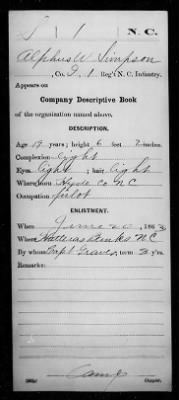 I | 1 | N. C.
Alpheus W Simpson
, Co. I, 1 Reg't N. C. Infantry.
Appears on
Company Descriptive Book
of the organization named above.
DESCRIPTION.
Age 19 years; height 6 feet 2 inches.
Complexion light
Eyes light ; hair light
Where born Hyde Co NC
Occupation pilot
ENLISTMENT.
When June 20 , 1863
Where Hatteras Banks NC
By whom Capt Graves , term 3 y'rs.
Remarks:
Copyist.